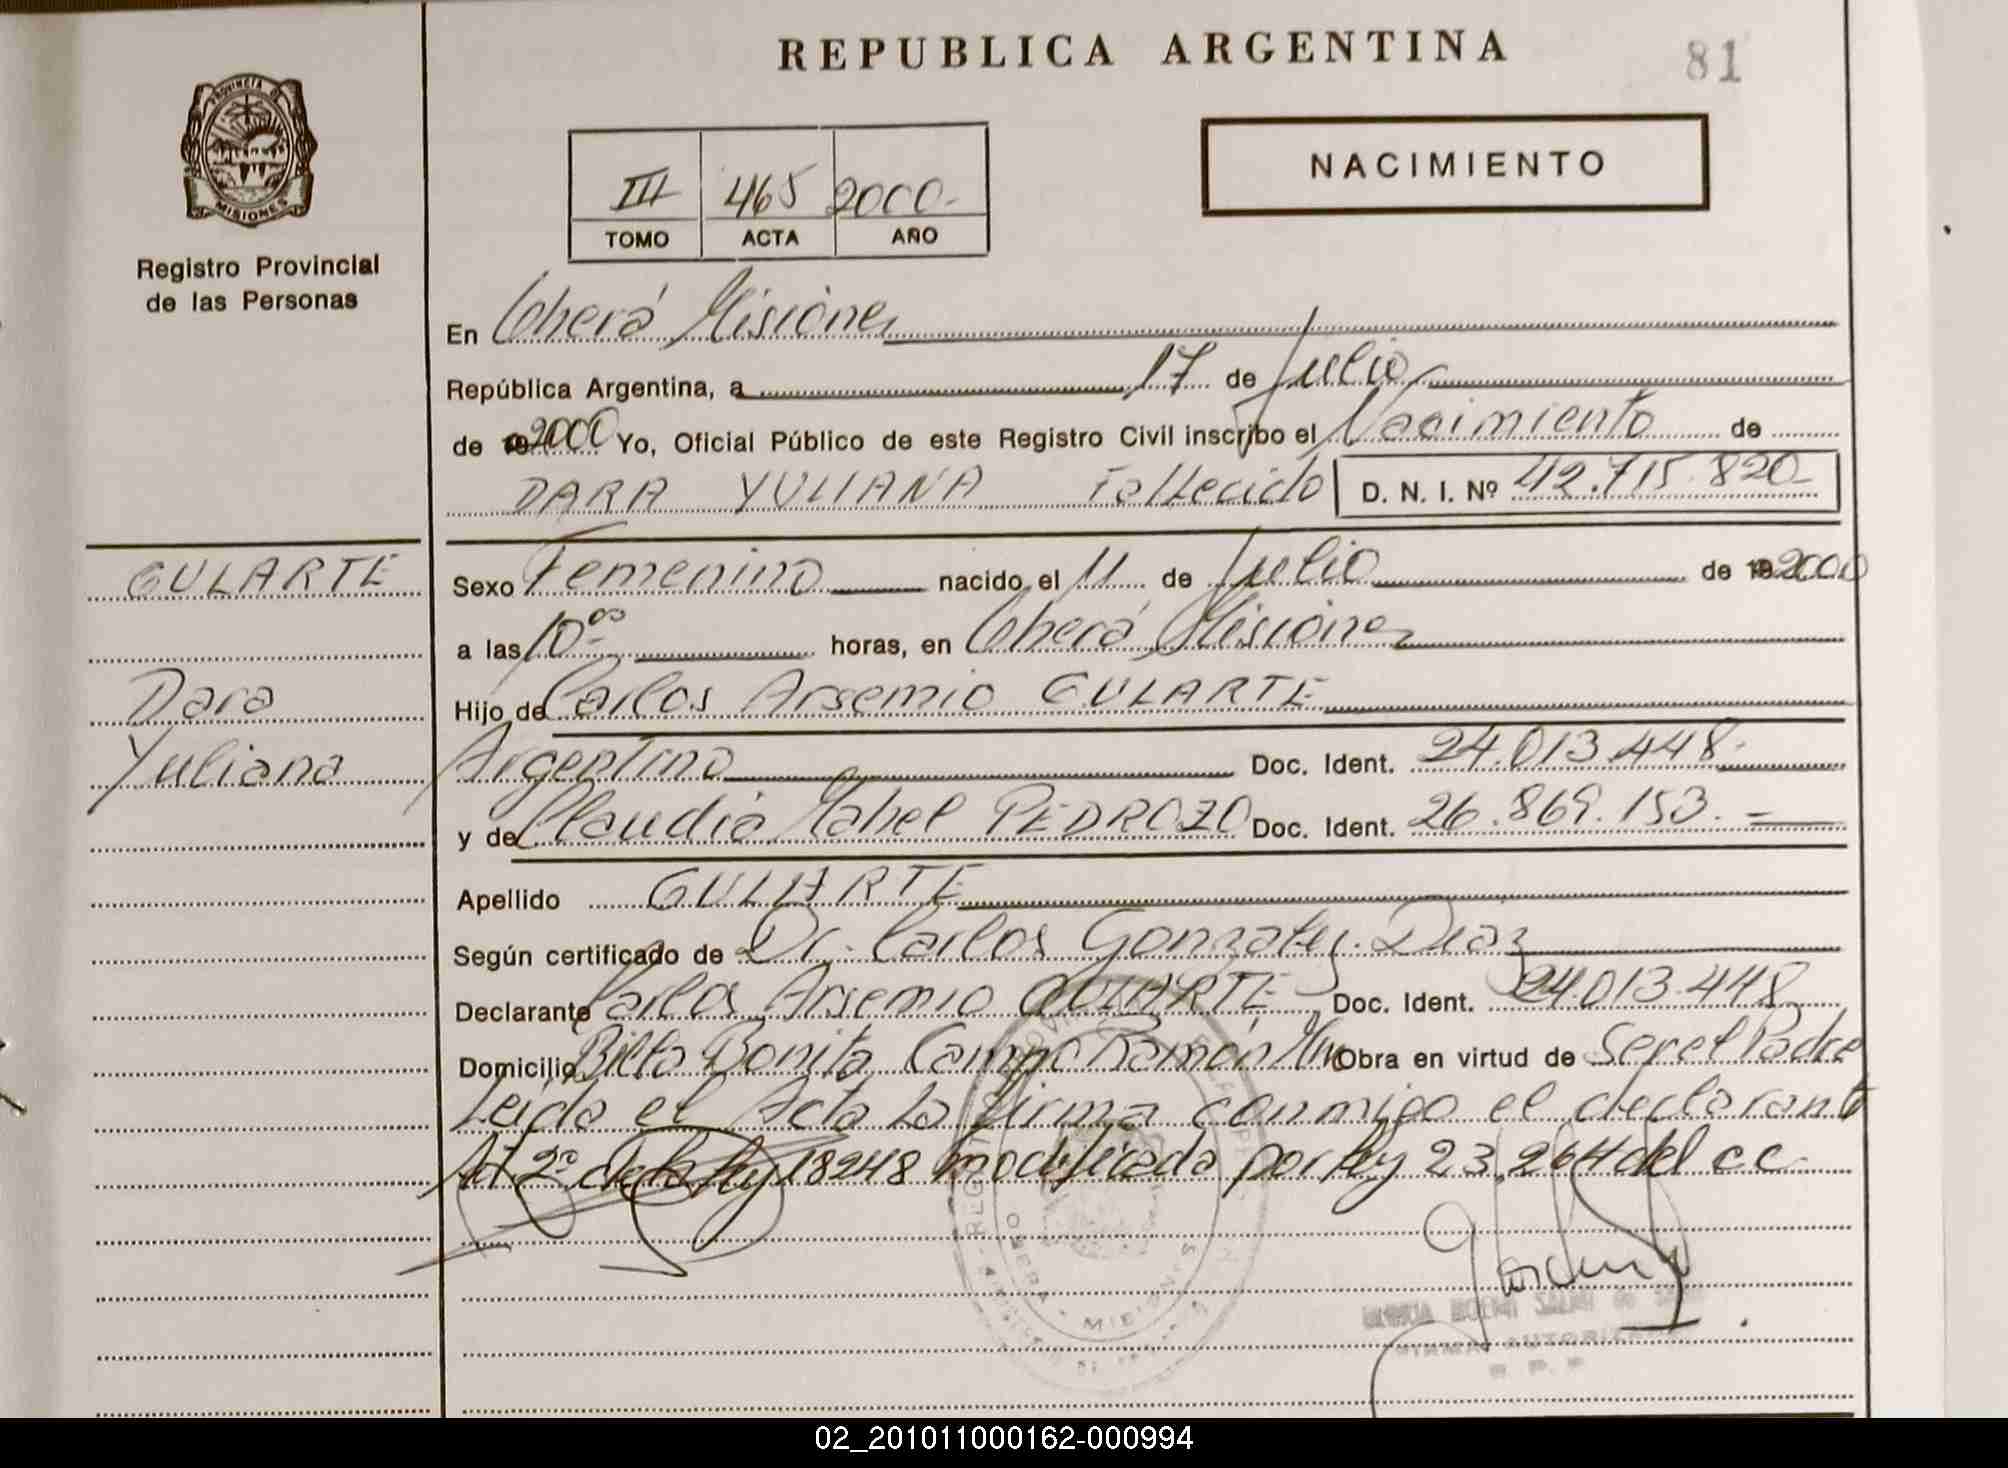 REPUBLICA ARGENTINA
81
PROVINCIA DE
MISIONES
Registro Provincial
de las Personas
NACIMIENTO
III 465 2000-
TOMO ACTA AÑO
En Oberá Misiones
República Argentina, a 17 de Julio
de 2000 Yo, Oficial Público de este Registro Civil inscribo el Nacimiento de
DARA YULIANA Fallecido D. N. I. Nº 42.715.820-
GULARTE
Dara
Yuliana
Sexo Femenino nacido el 11 de Julio de 2000
a las 10⁰⁰ horas, en Oberá Misiones
Hijo de Carlos Arsemio GULARTE
Argentino Doc. Ident. 24.013.448-
y de Claudia Mabel PEDROZO Doc. Ident. 26.869.153.-
Apellido GULARTE
Según certificado de Dr. Carlos Gonzalez Diaz
Declarante Carlos Arsemio GULARTE Doc. Ident. 24.013.448
Domicilio Bonita Campo Ramón Mnes Obra en virtud de Ser el Padre
Leída el Acta la firma conmigo el declarante
Art 2º de la ley 18248 modificada por ley 23264 del cc.
OBERA MISIONES
FIRMA AUTORIZADA
02_201011000162-000994